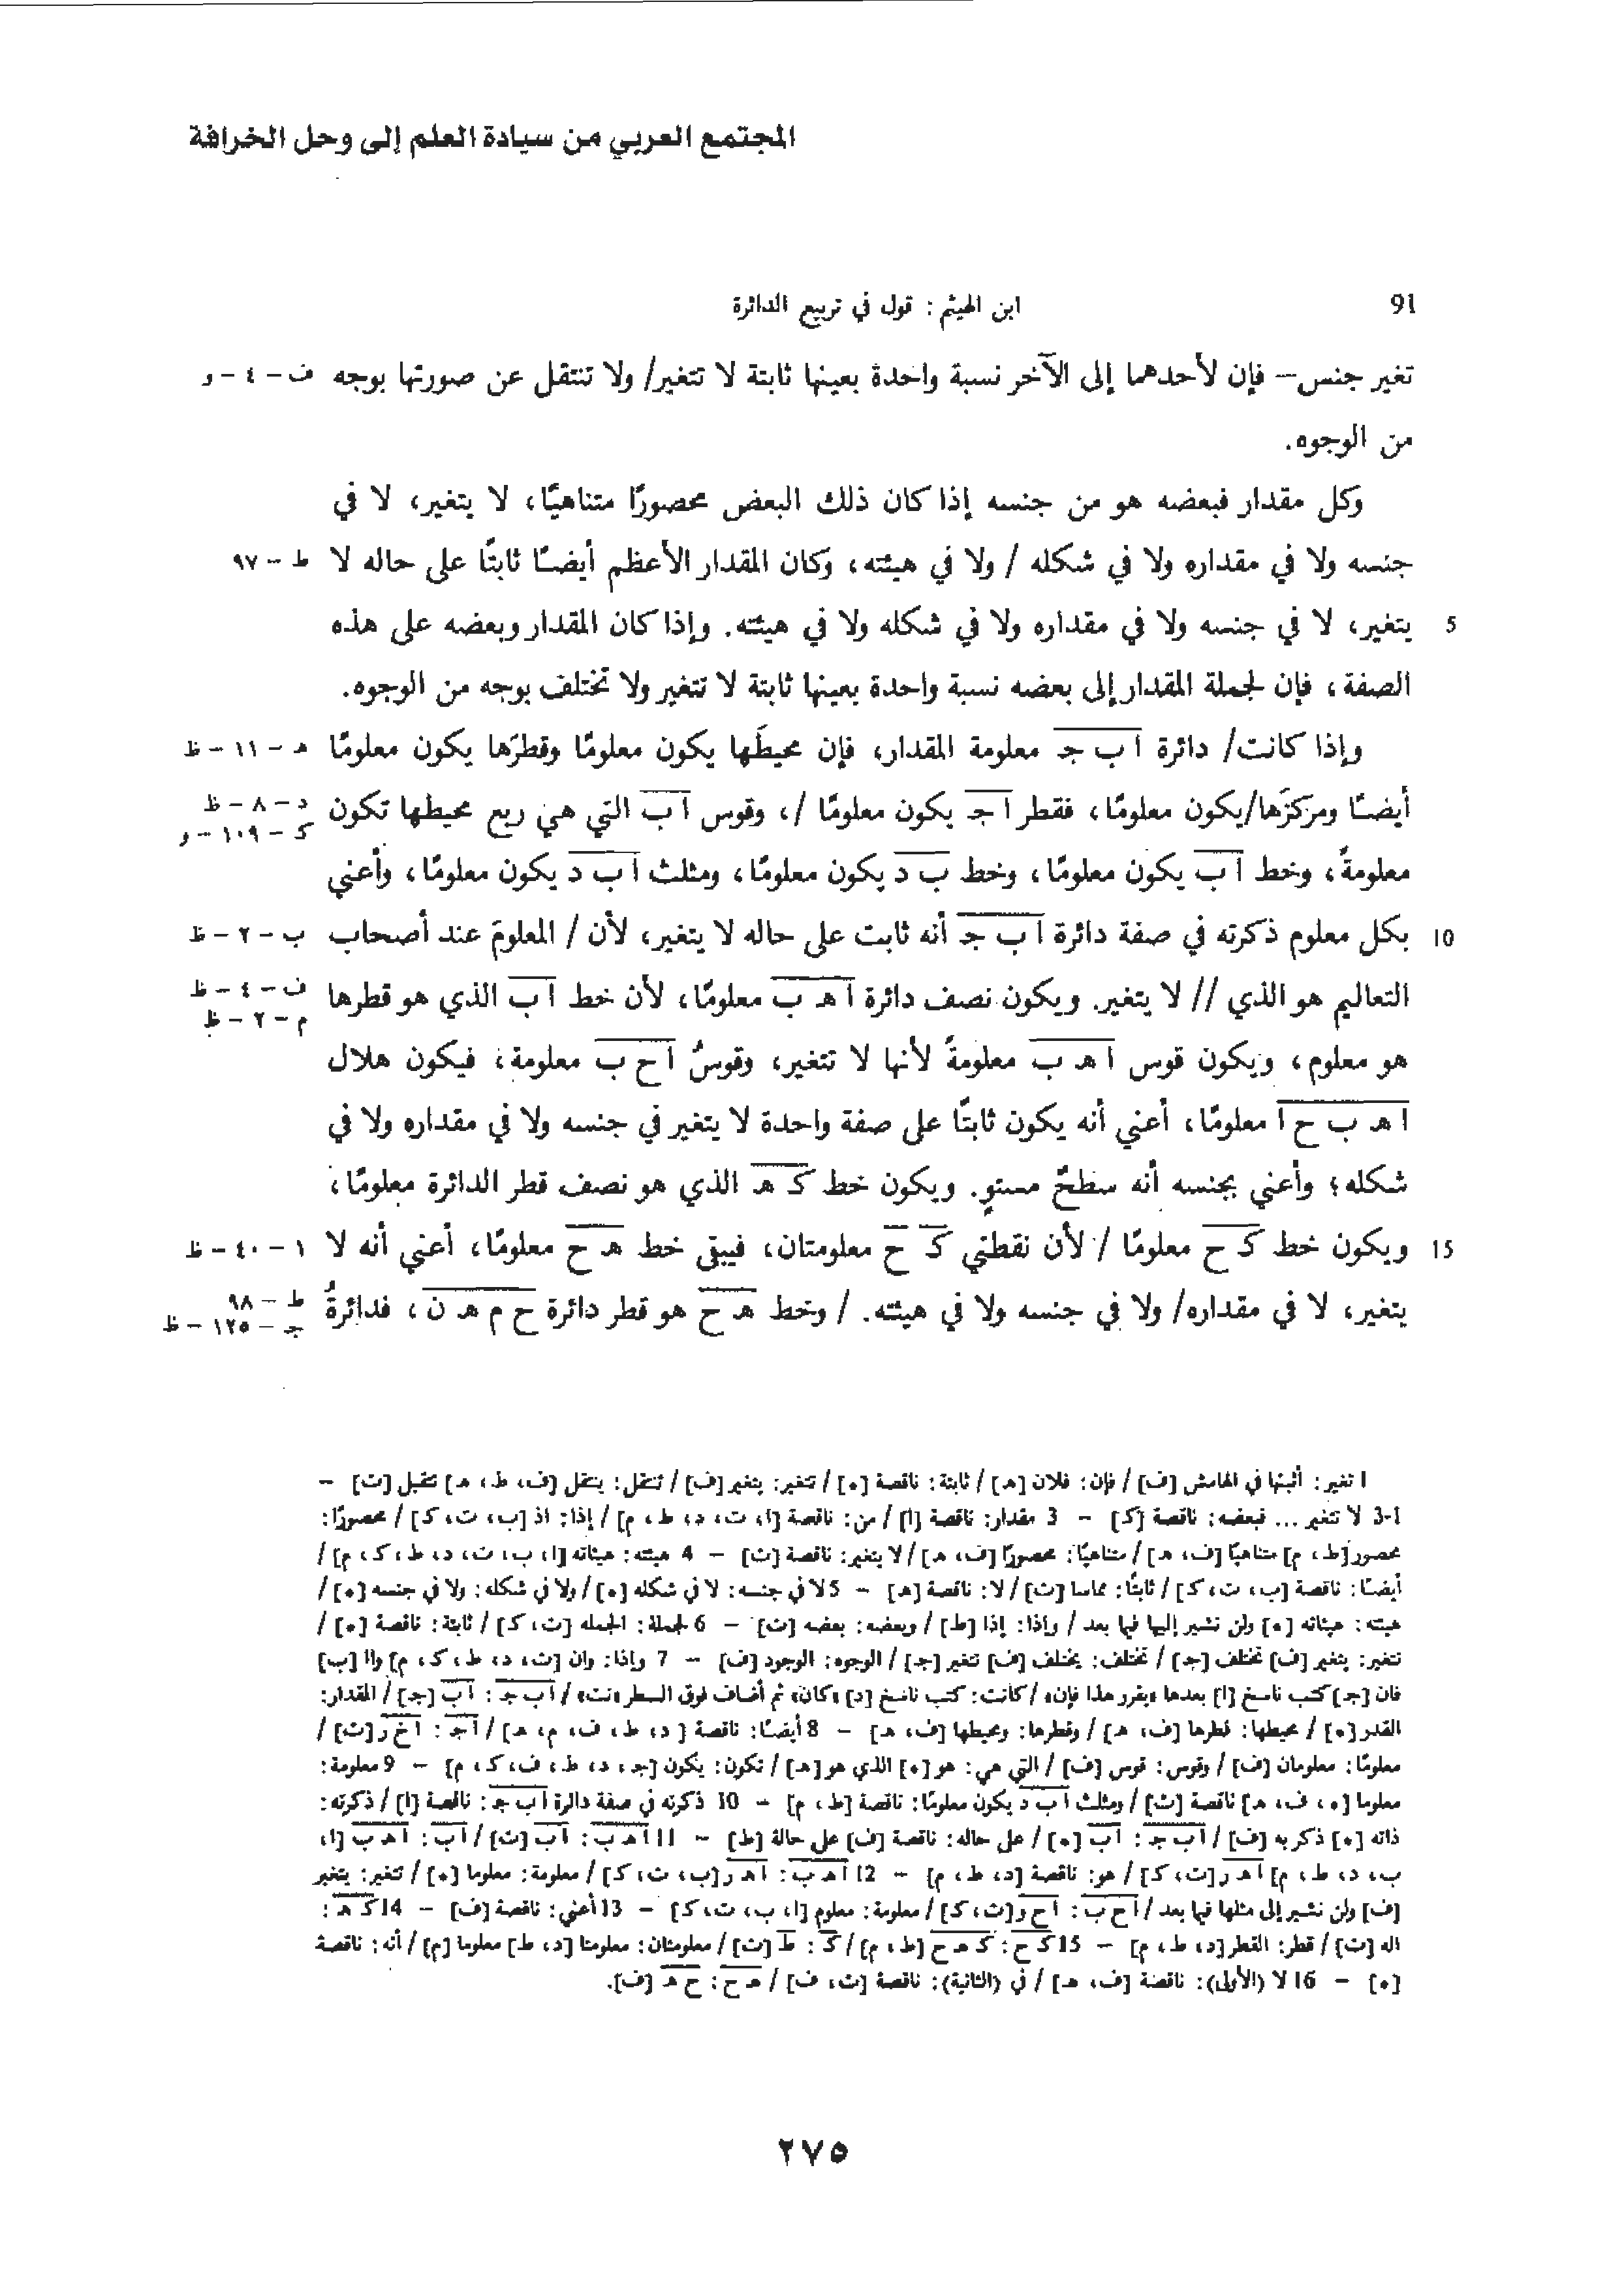 المجتمع العربي من سيادة العلم إلى وحل الخرافة
91 ابن الهيثم : قول في تربيع الدائرة
تغير جنس – فإن لأحدهما إلى الآخر نسبة واحدة بعينها ثابتة لا تتغير/ ولا تنتقل عن صورتها بوجه ف – ٤ – و
من الوجوه.
وكل مقدار فبعضه هو من جنسه إذا كان ذلك البعض محصورًا متناهيًا، لا يتغير، لا في
جنسه ولا في مقداره ولا في شكله / ولا في هيئته، وكان المقدار الأعظم أيضًا ثابتًا على حاله لا ط – ٩٧
5 يتغير، لا في جنسه ولا في مقداره ولا في شكله ولا في هيئته. وإذا كان المقدار وبعضه على هذه
الصفة، فإن لجملة المقدار إلى بعضه نسبة واحدة بعينها ثابتة لا تتغير ولا تختلف بوجه من الوجوه.
وإذا كانت/ دائرة ا ب جـ معلومة المقدار، فإن محيطَها يكون معلومًا وقطرَها يكون معلومًا هـ – ١١ – ظ
أيضًا ومركزَها/يكون معلومًا، فقطر ا جـ يكون معلومًا /، وقوس ا ب التي هي ربع محيطها تكون د – ٨ – ظ
كـ – ١٠٩ – و
معلومةً، وخط ا ب يكون معلومًا، وخط ب د يكون معلومًا، ومثلث ا ب د يكون معلومًا، وأعني
10 بكل معلوم ذكرته في صفة دائرة ا ب جـ أنه ثابت على حاله لا يتغير، لأن / المعلومَ عند أصحاب ب – ٢ – ظ
التعاليم هو الذي // لا يتغير. ويكون نصف دائرة ا هـ ب معلومًا، لأن خط ا ب الذي هو قطرها ف – ٤ – ظ
م – ٢ – ظ
هو معلوم، ويكون قوس ا هـ ب معلومةً لأنها لا تتغير، وقوسُ ا ح ب معلومة، فيكون هلال
ا هـ ب ح ا معلومًا، أعني أنه يكون ثابتًا على صفة واحدة لا يتغير في جنسه ولا في مقداره ولا في
شكله؛ وأعني بجنسه أنه سطحٌ مستوٍ. ويكون خط كـ هـ الذي هو نصف قطر الدائرة معلومًا،
15 ويكون خط كـ ح معلومًا / لأن نقطتي كـ ح معلومتان، فيبقى خط هـ ح معلومًا، أعني أنه لا ١ – ٤٠ – ظ
يتغير، لا في مقداره/ ولا في جنسه ولا في هيئته. / وخط هـ ح هو قطر دائرة ح م هـ ن، فدائرةُ ط – ٩٨
جـ – ١٢٥ – ظ
1 تغير: أثبتها في الهامش [ف] / فإن: فلان [هـ] / ثابتة: ناقصة [٥] / تتغير: يتغير [ف] / تنتقل: ينتقل [ف، ط، هـ] تنقبل [ت] –
1-3 لا تتغير ... فبعضه: ناقصة [كـ] – 3 مقدار: ناقصة [ا] / من: ناقصة [ا، ت، د، ط، م] / إذا: اذ [ب، ت، كـ] / محصورًا:
محصور [ط، م] متناهيًا [ف، هـ] / متناهيًا: محصورًا [ف، هـ] / لا يتغير: ناقصة [ت] – 4 هيئته: هيئاته [ا، ب، ت، د، ط، كـ، م] /
أيضًا: ناقصة [ب، ت، كـ] / ثابتًا: مماسا [ت] / لا: ناقصة [هـ] – 5 لا في جنسه: لا في شكله [٥] / ولا في شكله: ولا في جنسه [٥] /
هيئته: هيئاته [٥] ولن نشير إليها فيما بعد / وإذا: إذا [ط] / وبعضه: بعضه [ت] – 6 لجملة: الجمله [ت، كـ] / ثابتة: ناقصة [٥] /
تتغير: يتغير [ف] تختلف [جـ] / تختلف: يختلف [ف] تتغير [جـ] / الوجوه: الوجود [ف] – 7 وإذا: وان [ت، د، ط، كـ، م] واا [ب]
فان [جـ] كتب ناسخ [ا] بعدها «يقرر هذا فإن» / كانت: كتب ناسخ [د] «كان» ثم أضاف فوق السطر «نت» / ا ب جـ: ا ب [جـ] / المقدار:
القدر [٥] / محيطها: قطرها [ف، هـ] / وقطرها: ومحيطها [ف، هـ] – 8 أيضًا: ناقصة [د، ط، ف، م، هـ] / ا جـ: ا خ ر [ت] /
معلومًا: معلومان [ف] / وقوس: قوس [ف] / التي هي: هو [٥] الذي هو [هـ] / تكون: يكون [جـ، د، ط، ف، كـ، م] – 9 معلومة:
معلوما [٥، ف، هـ] ناقصة [ت] / ومثلث ا ب د يكون معلومًا: ناقصة [ط، م] – 10 ذكرته في صفة دائرة ا ب جـ: ناقصة [ا] / ذكرته:
ذاته [٥] ذكر به [ف] / ا ب جـ: ا ب [٥] / على حاله: ناقصة [ف] على حالة [ط] – 11 ا هـ ب: ا ب [ت] / ا ب: ا هـ ب [ا،
ب، د، ط، م] ا هـ ر [ت، كـ] / هو: ناقصة [د، ط، م] – 12 ا هـ ب: ا هـ ر [ب، ت، كـ] / معلومة: معلوما [٥] / تتغير: يتغير
[ف] ولن نشير إلى مثلها فيما بعد / ا ح ب: ا ح ر [ت، كـ] / معلومة: معلوم [ا، ب، ت، كـ] – 13 أعني: ناقصة [ف] – 14 كـ هـ:
اله [ت] / قطر: القطر [د، ط، م] – 15 كـ ح: كـ هـ ح [ط، م] / كـ: ط [ت] / معلومتان: معلومتا [د، ط] معلوما [م] / أنه: ناقصة
[٥] – 16 لا (الأولى): ناقصة [ف، هـ] / في (الثانية): ناقصة [ت، ف] / هـ ح: ح هـ [ف].
٢٧٥